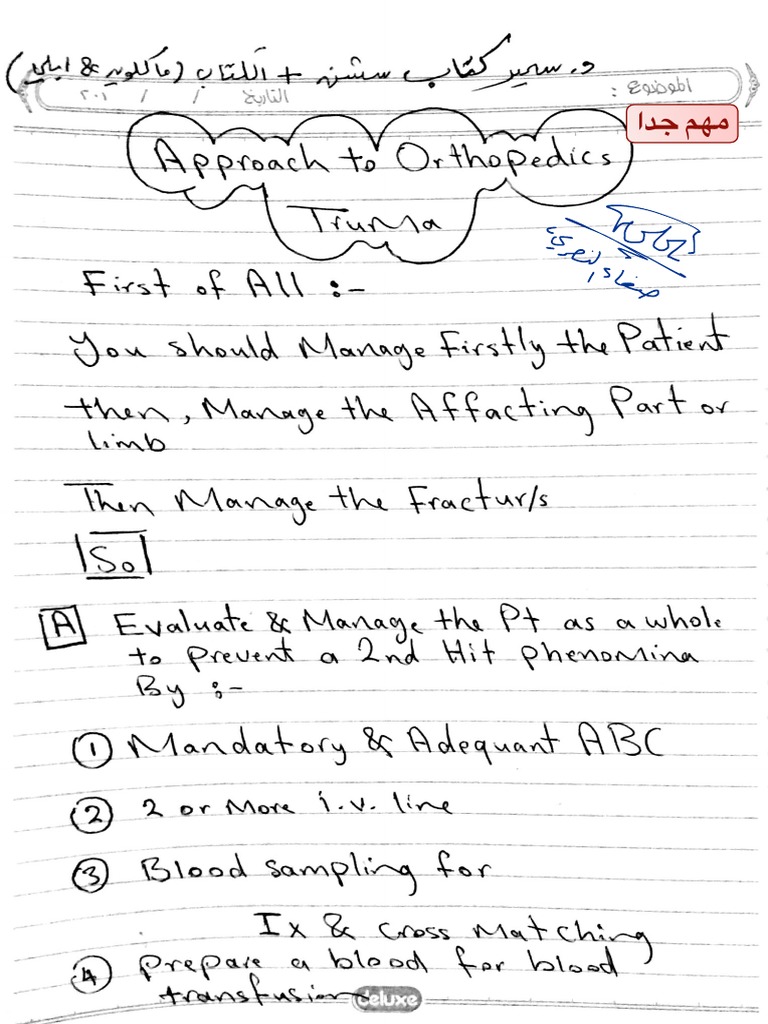 د. سمير كتاب سشنه + الكتاب (ماكلوير & ابلي)
الموضوع :
التاريخ / / ٢٠١
مهم جدا
Approach to Orthopedics
Truma
First of All :-
You should Manage Firstly the Patient
then, Manage the Affacting Part or
limb
Then Manage the Fractur/s
So
A Evaluate & Manage the Pt as a whole
to prevent a 2nd Hit phenomina
By :-
1 Mandatory & Adequant ABC
2 2 or More i.v. line
3 Blood sampling for
Ix & cross Matching
4 prepare a blood for blood
transfusion
deluxe